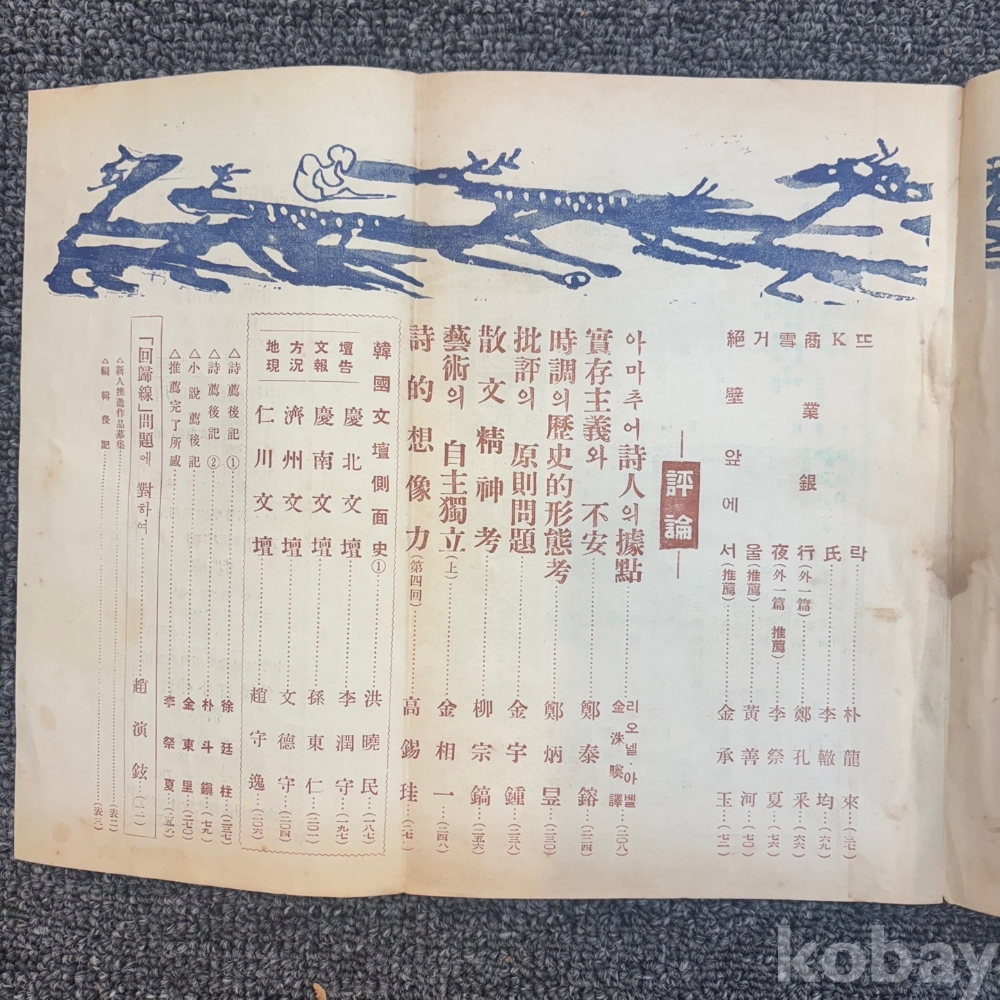 뜨락……朴龍來…(三七)
K氏……李轍均…(六九)
商業銀行(外一篇)……鄭孔釆…(六六)
雪夜(外一篇 推薦)……李祭夏…(七六)
겨울(推薦)……黃善河…(七〇)
絕壁앞에서(推薦)……金承玉…(七二)
評論
아마추어 詩人의 據點……리오넬·아벨 金洙暎譯…(二〇八)
實存主義와 不安……鄭泰鎔…(二二四)
時調의 歷史的形態考……鄭炳昱…(二三〇)
批評의 原則問題……金宇鍾…(二三八)
散文精神考……柳宗鎬…(二五六)
藝術의 自主獨立(上)……金相一…(二四八)
詩的想像力(第四回)……高錫珪…(二七一)
韓國文壇側面史①……洪曉民…(一八七)
地方文壇 現況報告
慶北文壇……李潤守…(一九七)
慶南文壇……孫東仁…(二〇一)
濟州文壇……文德守…(二〇四)
仁川文壇……趙守逸…(二〇六)
△詩薦後記①……徐廷柱…(二三七)
△詩薦後記②……朴斗鎭…(七九)
△小說薦後記……金東里…(二七〇)
△推薦完了所感……李祭夏…(二五八)
「回歸線」問題에 對하여……趙演鉉…(一二)
△新人推薦作品募集……(表二)
△編輯後記……(表三)
kobay